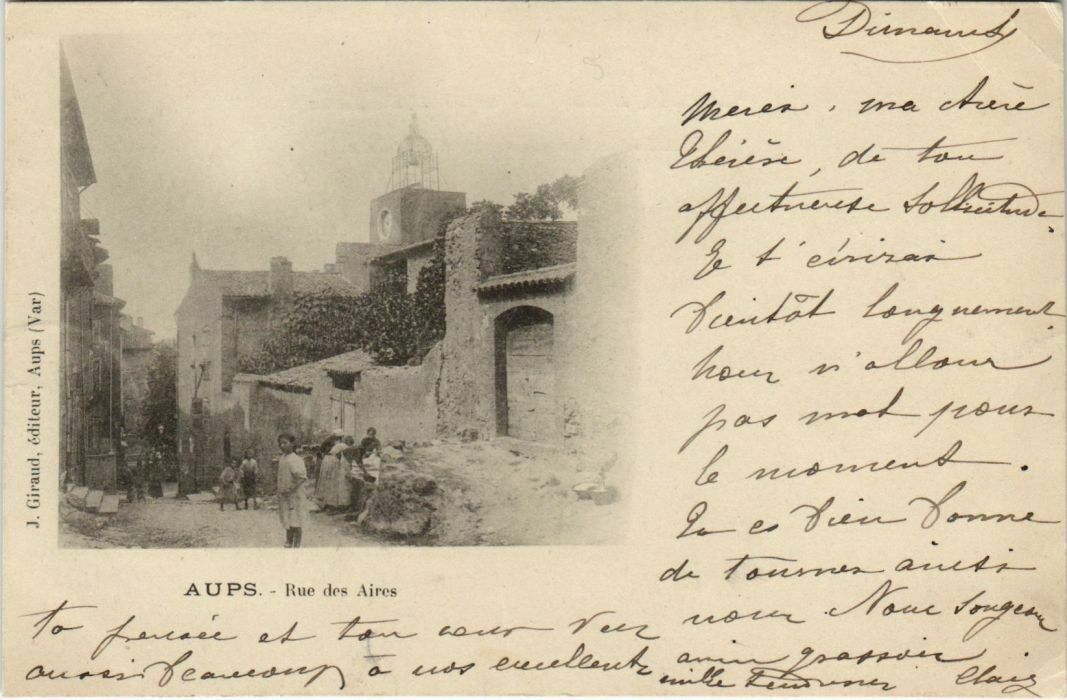 Dimanche
Merci, ma chère
Thérèse, de ton
affectueuse sollicitude.
Je t'écrirai
bientôt longuement
nous n'allons
pas mal pour
le moment.
Tu es bien bonne
de tourner ainsi
ta pensée et ton cœur vers nous. Nous songeons
aussi beaucoup à nos excellents amis grassois
mille tendresses
J. Giraud, éditeur, Aups (Var)
AUPS. - Rue des Aires